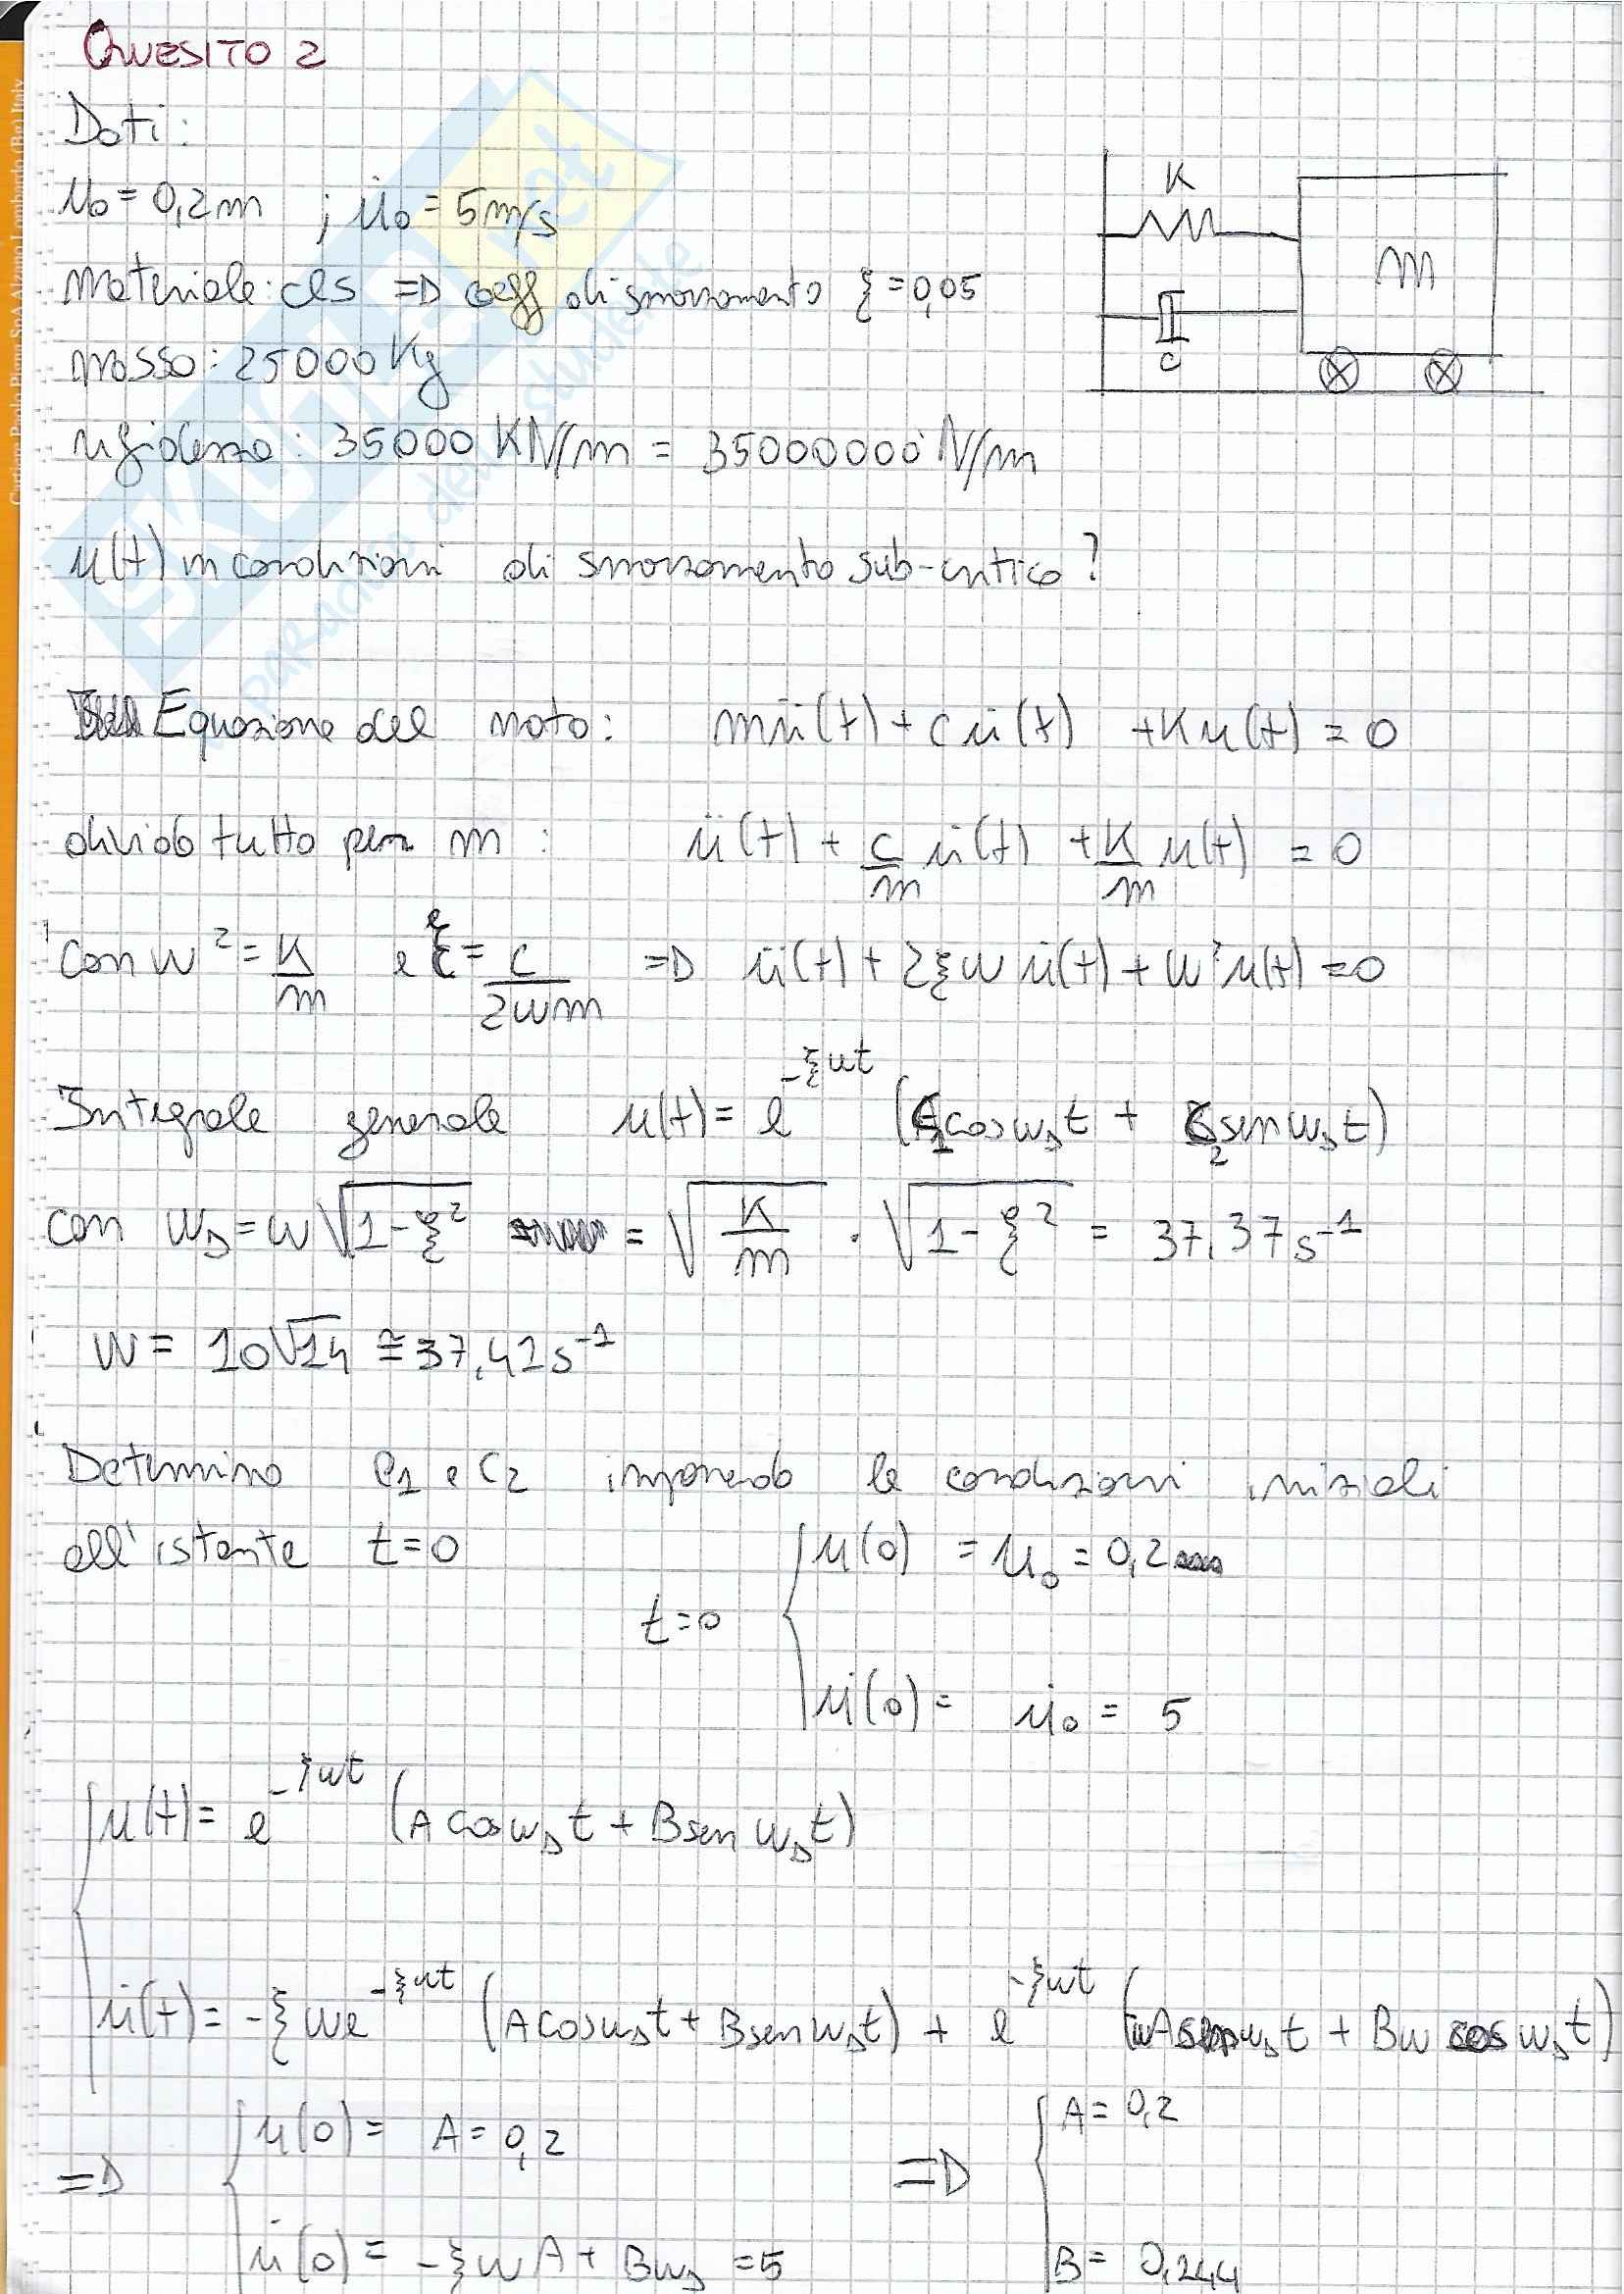 QUESITO 2
Dati:
u₀ = 0,2m ; u̇₀ = 5m/s
K
m
c
materiale: cls => coeff di smorzamento ξ = 0,05
massa: 25000 Kg
rigidezza: 35000 KN/m = 35000000 N/m
u(t) in condizioni di smorzamento sub-critico?
Equazione del moto: mü(t) + cu̇(t) + Ku(t) = 0
divido tutto per m: ü(t) + c/m u̇(t) + K/m u(t) = 0
con w² = K/m e ξ = c/2wm => ü(t) + 2ξw u̇(t) + w² u(t) = 0
Integrale generale u(t) = e^-ξwt (C₁ cos w_D t + C₂ sen w_D t)
con w_D = w √1-ξ² = √K/m · √1-ξ² = 37,37 s⁻¹
w = 10√14 ≅ 37,41 s⁻¹
Determino C₁ e C₂ imponendo le condizioni iniziali
all'istante t=0
u(0) = u₀ = 0,2
t=0
u̇(0) = u̇₀ = 5
u(t) = e^-ξwt (A cos w_D t + B sen w_D t)
u̇(t) = -ξwe^-ξwt (A cos w_D t + B sen w_D t) + e^-ξwt (wA sen w_D t + Bw cos w_D t)
=> u(0) = A = 0,2 => A = 0,2
u̇(0) = -ξwA + Bw_D = 5 B = 0,244
SKUOLA.net
paradiso dello studente